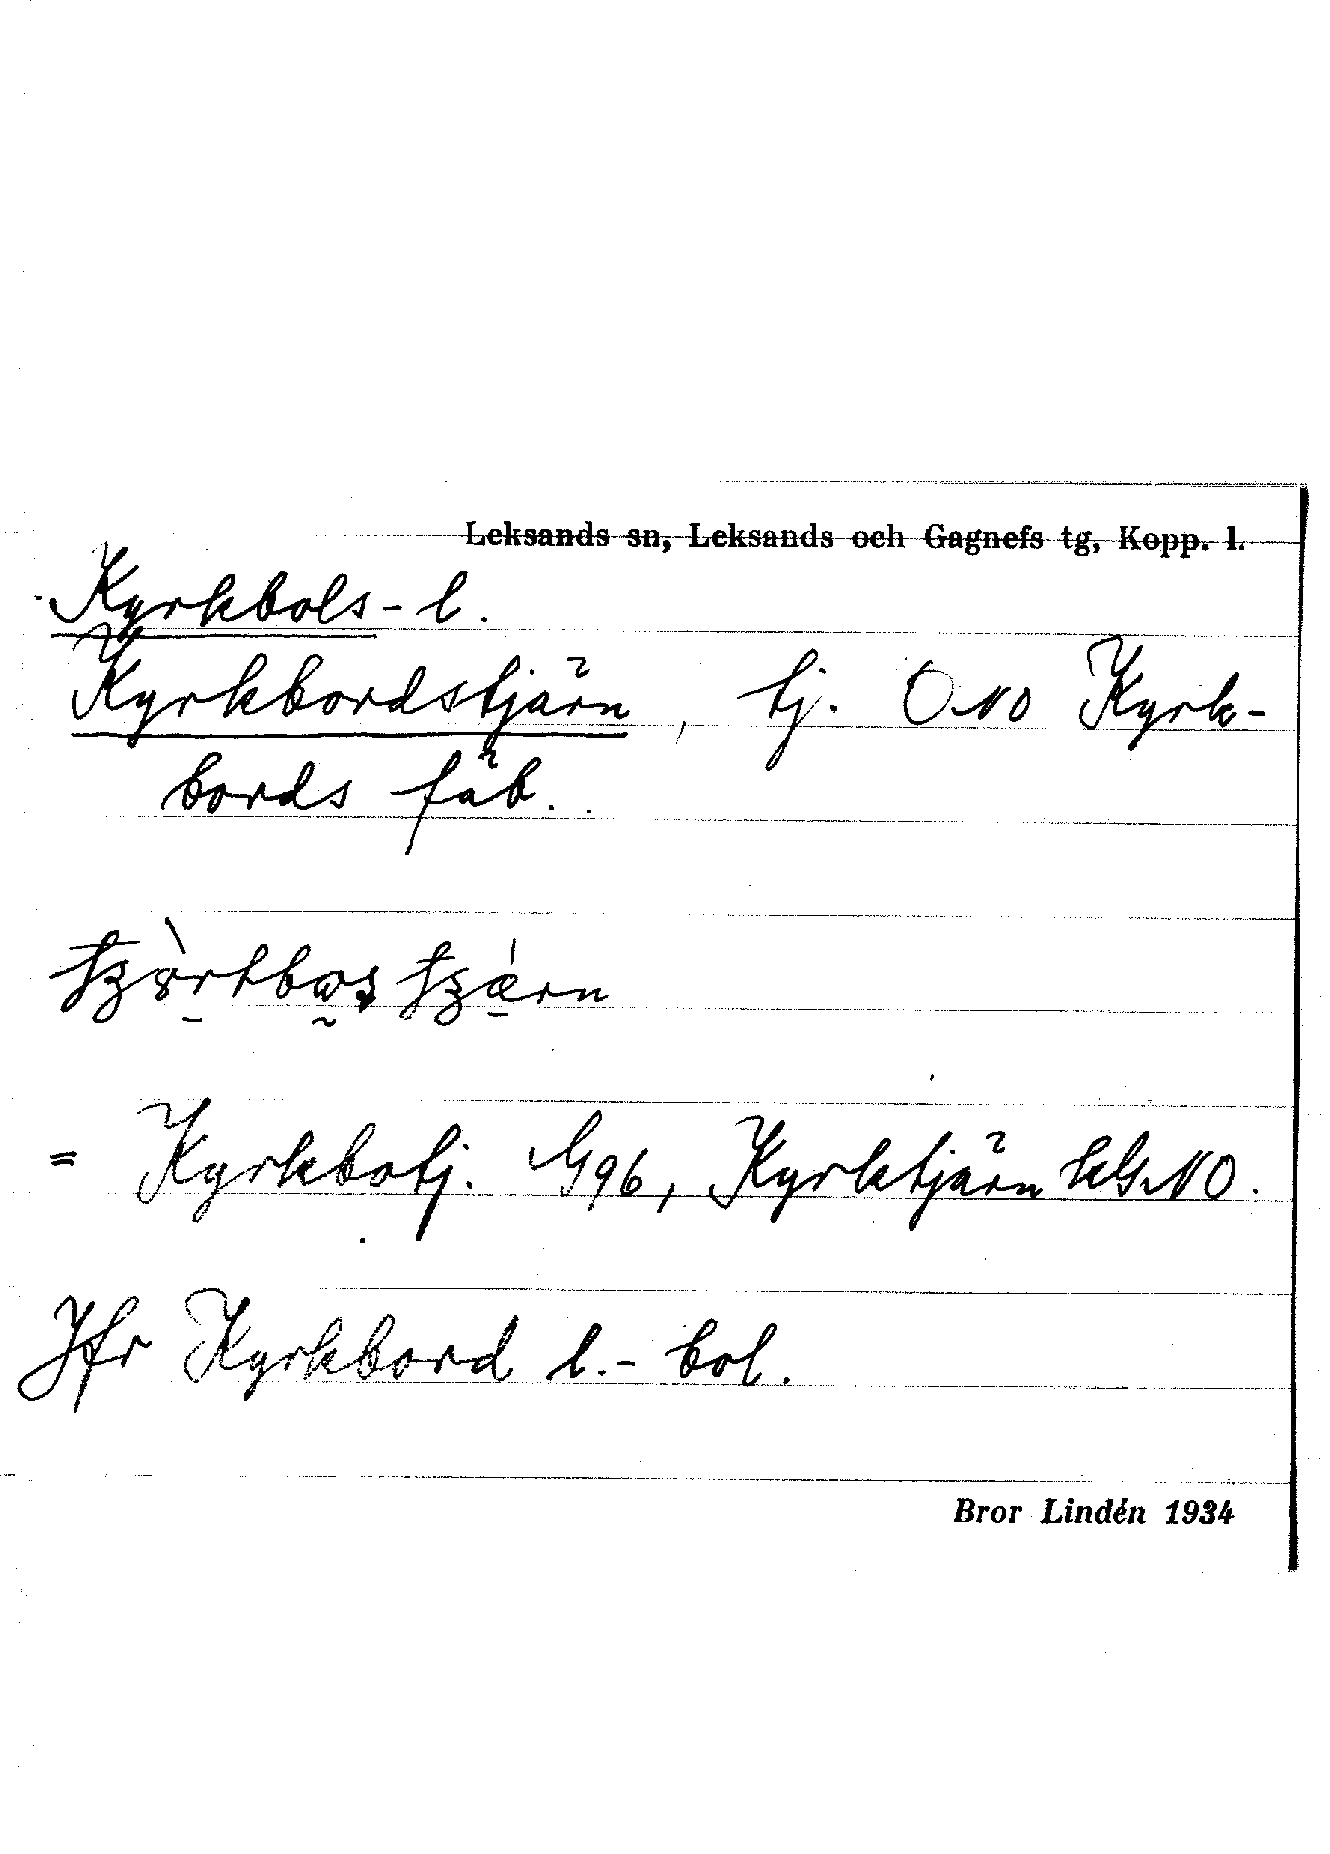 Leksands sn, Leksands och Gagnefs tg, Kopp. l.
Kyrkbols- l.
Kyrkbordstjärn, tj. ONO Kyrk-
bords fäb.
= Kyrkbotj. G96, Kyrktjärn kG.NO.
Jfr Kyrkbord l.- bol.
Bror Lindén 1934